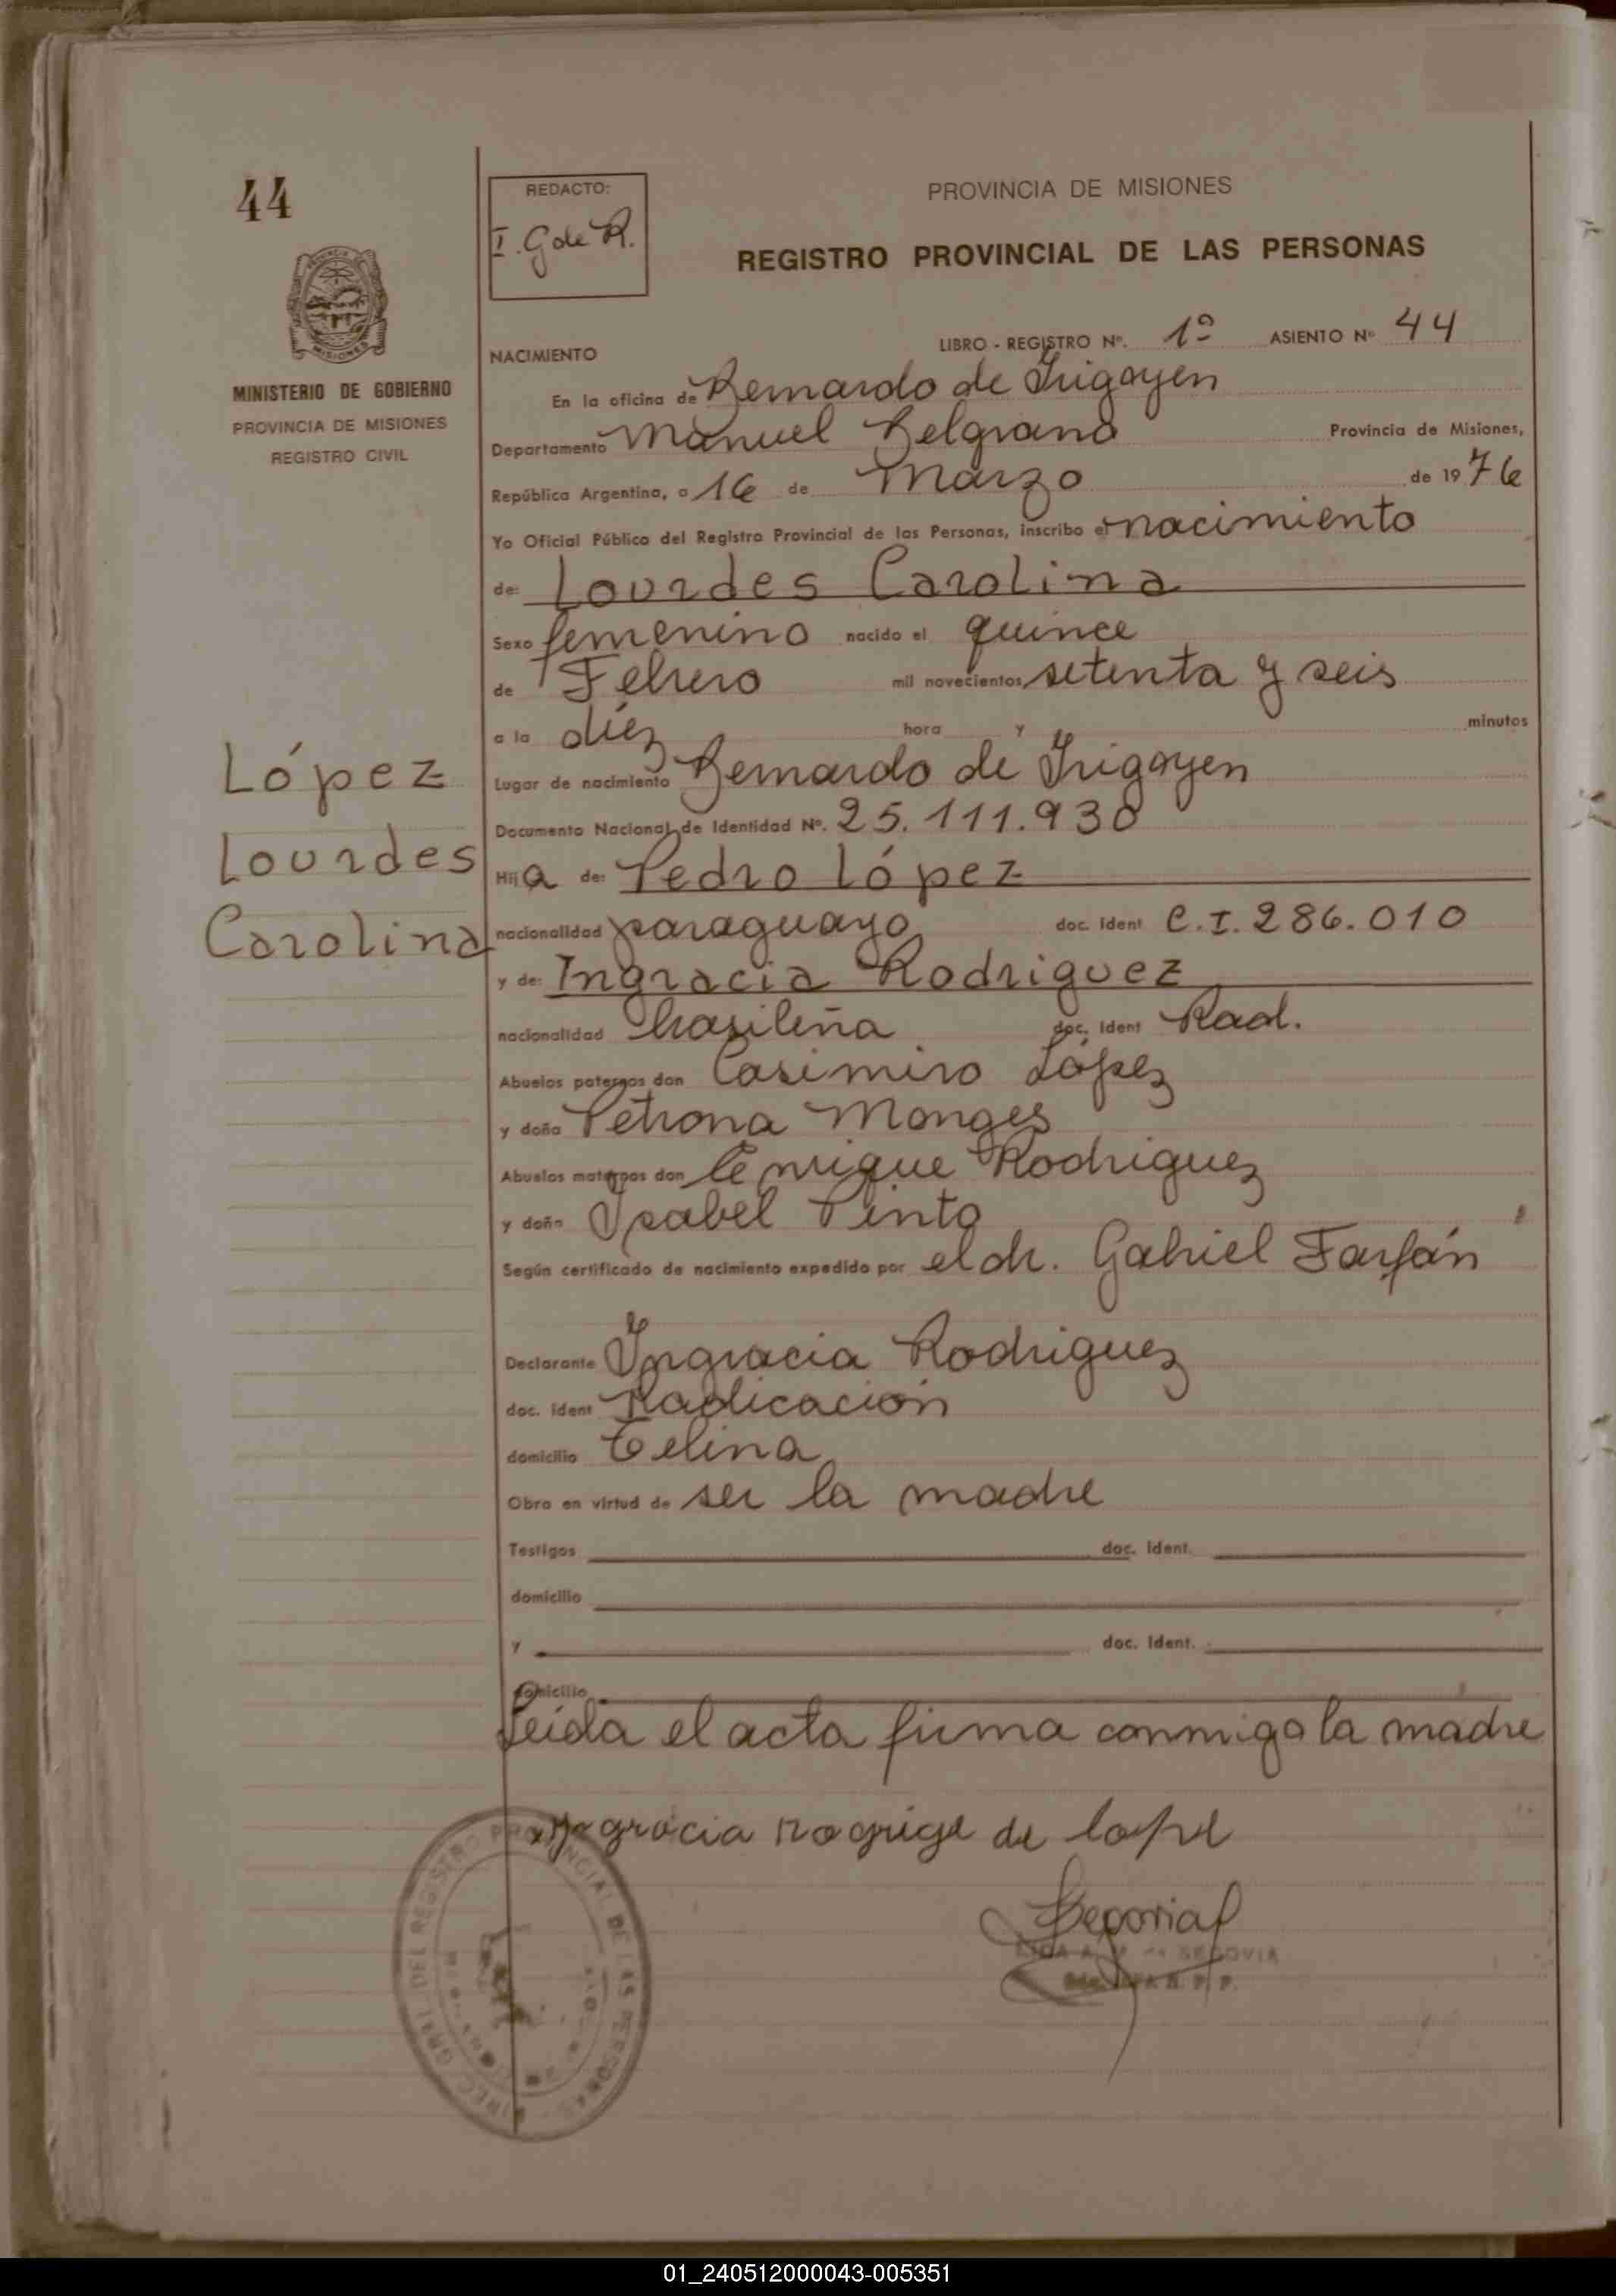 44
MINISTERIO DE GOBIERNO
PROVINCIA DE MISIONES
REGISTRO CIVIL
López
Lourdes
Carolina
REDACTO:
I. G de R.
PROVINCIA DE MISIONES
REGISTRO PROVINCIAL DE LAS PERSONAS
NACIMIENTO LIBRO - REGISTRO Nº. 1º ASIENTO Nº 44
En la oficina de Bernardo de Irigoyen
Departamento Manuel Belgrano Provincia de Misiones,
República Argentina, a 16 de Marzo de 1976
Yo Oficial Público del Registro Provincial de las Personas, inscribo el nacimiento
de: Lourdes Carolina
Sexo femenino nacido el quince
de Febrero mil novecientos setenta y seis
a la diez hora y minutos
Lugar de nacimiento Bernardo de Irigoyen
Documento Nacional de Identidad Nº. 25.111.930
Hija de: Pedro López
nacionalidad paraguayo doc. Ident C.I. 286.010
y de: Ingracia Rodriguez
nacionalidad brasileña doc. Ident Rad.
Abuelos paternos don Casimiro López
y doña Petrona Monges
Abuelos maternos don Enrique Rodriguez
y doña Ysabel Pinto
Según certificado de nacimiento expedido por el dr. Gabriel Farfán
Declarante Yngracia Rodriguez
doc. Ident Radicación
domicilio Celina
Obra en virtud de ser la madre
Testigos doc. Ident.
domicilio
y doc. Ident.
domicilio
Leída el acta firma conmigo la madre
de
SEGOVIA
01_240512000043-005351